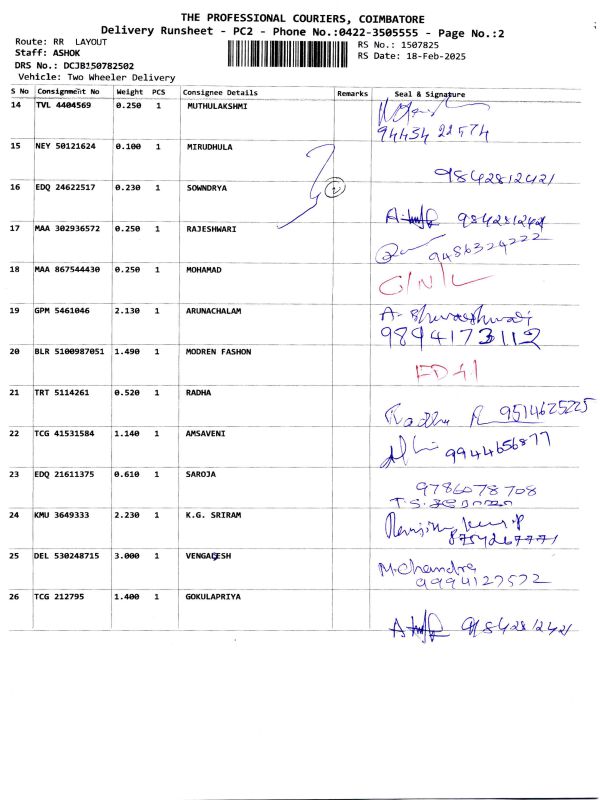 THE PROFESSIONAL COURIERS, COIMBATORE
Delivery Runsheet - PC2 - Phone No.:0422-3505555 - Page No.:2
Route: RR LAYOUT
RS No.: 1507825
Staff: ASHOK
RS Date: 18-Feb-2025
DRS No.: DCJB150782502
Vehicle: Two Wheeler Delivery
S No Consignment No Weight PCS Consignee Details Remarks Seal & Signature
14 TVL 4404569 0.250 1 MUTHULAKSHMI
94434 22574
15 NEY 50121624 0.100 1 MIRUDHULA
9842812421
16 EDQ 24622517 0.230 1 SOWNDRYA 2
9842812421
17 MAA 302936572 0.250 1 RAJESHWARI
9486324222
18 MAA 867544430 0.250 1 MOHAMAD
C/N/L
19 GPM 5461046 2.130 1 ARUNACHALAM
A. Bhuvaneshwari
9894173112
20 BLR 5100987051 1.490 1 MODREN FASHON
21 TRT 5114261 0.520 1 RADHA
Radha R 9514625225
22 TCG 41531584 1.140 1 AMSAVENI
9944656877
23 EDQ 21611375 0.610 1 SAROJA
9786078708
24 KMU 3649333 2.230 1 K.G. SRIRAM
25 DEL 530248715 3.000 1 VENGADESH
M.Chandra
9994127572
26 TCG 212795 1.400 1 GOKULAPRIYA
9842812421